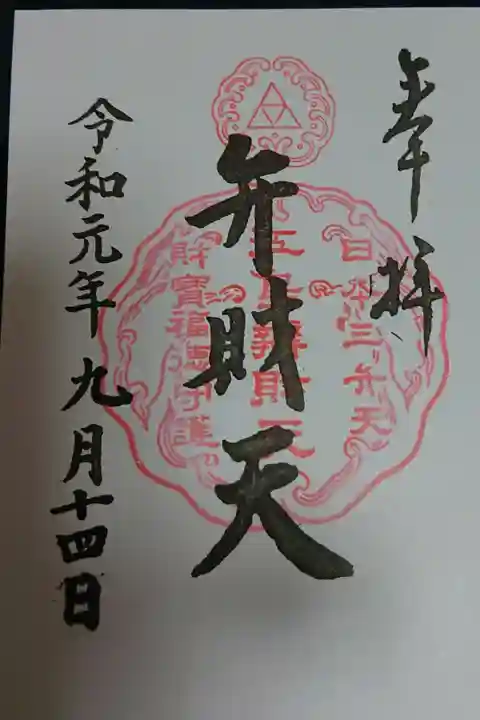 奉拝
弁財天
日本三弁天
財寶福徳守護
令和元年九月十四日